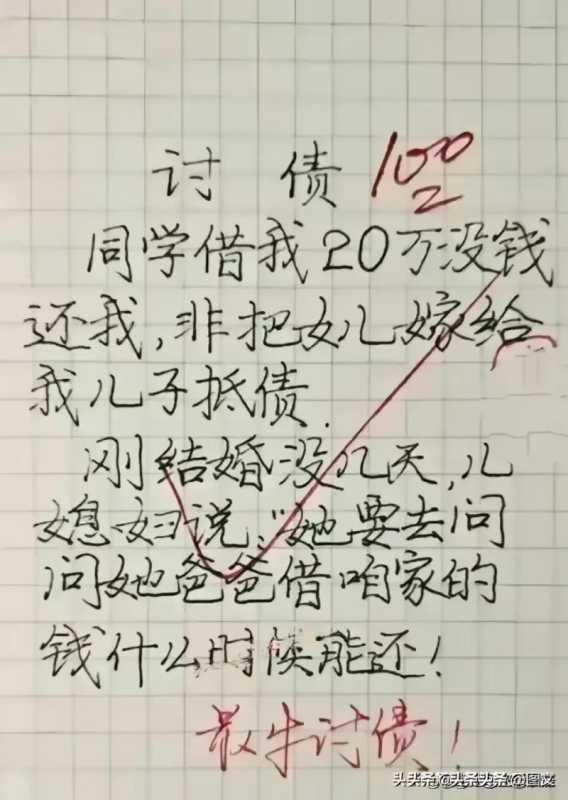 讨 债 100
2
同学借我20万没钱
还我,非把女儿嫁给
我儿子抵债.
刚结婚没几天,儿
媳妇说:"她要去问
问她爸爸借咱家的
钱什么时候能还!
最牛讨债!
头条@头条@图文